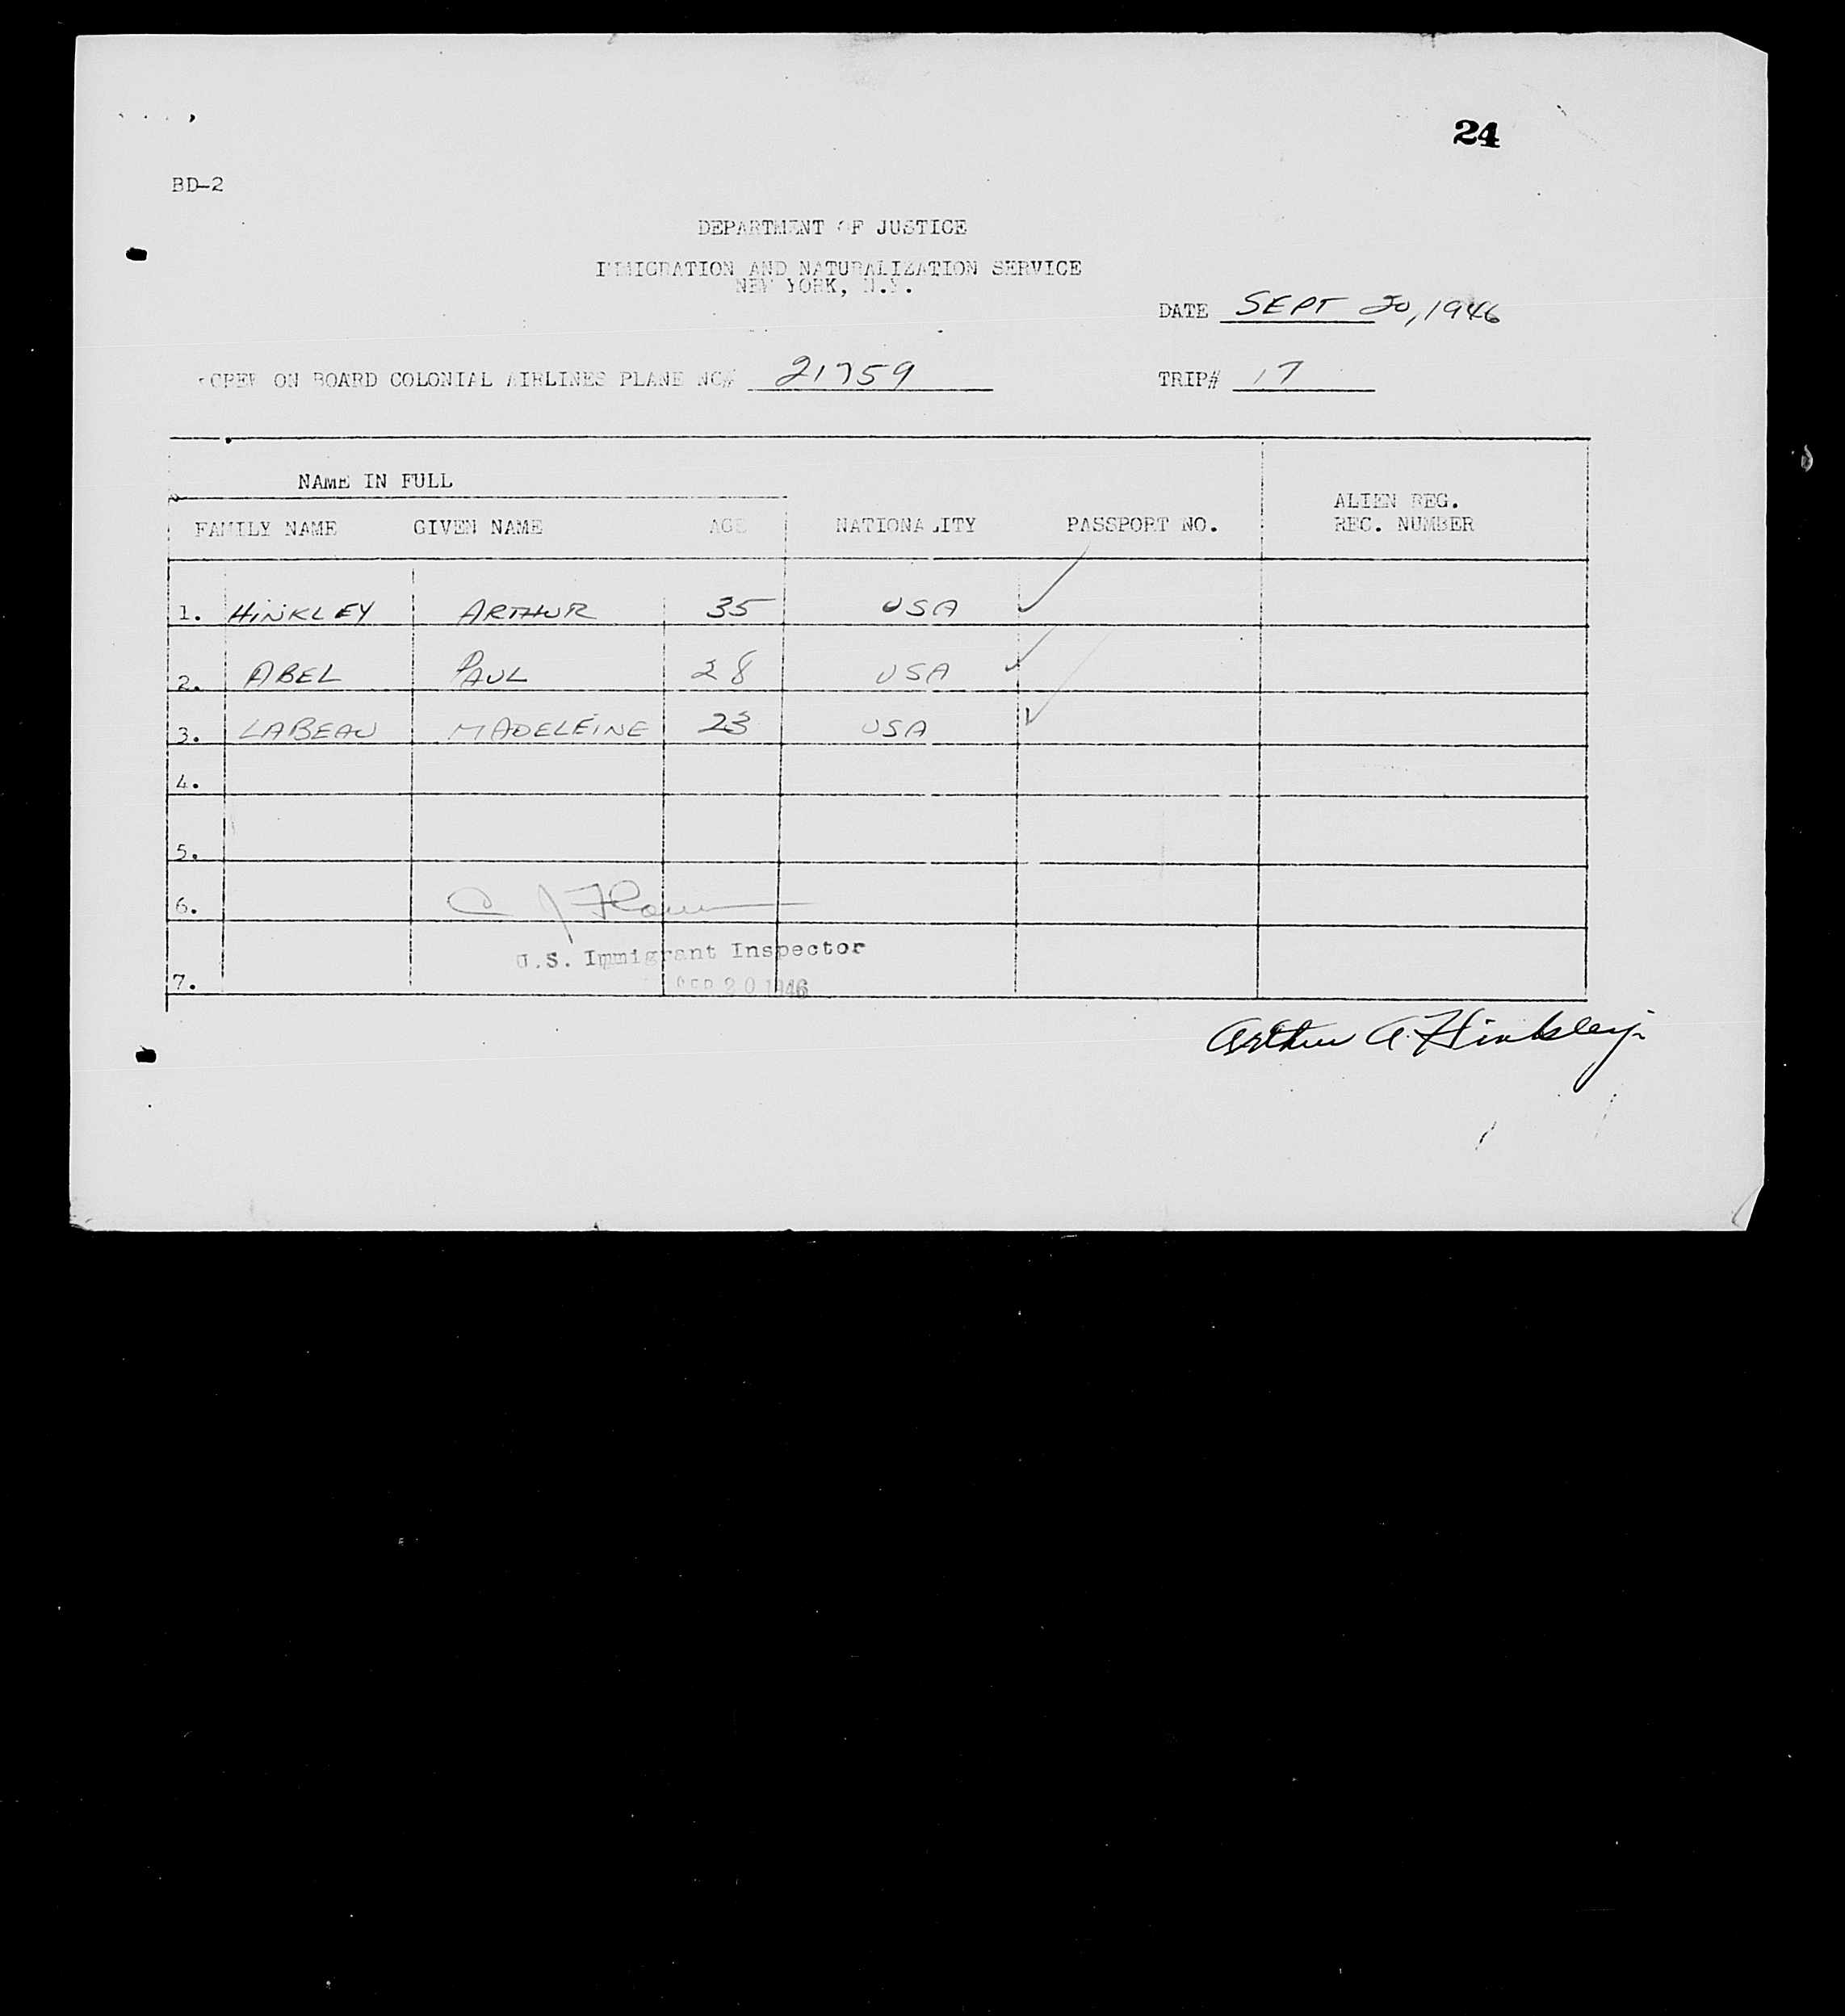 24
BD-2
DEPARTMENT OF JUSTICE
IMMIGRATION AND NATURALIZATION SERVICE
NEW YORK, N.Y.
DATE SEPT 20, 1946
CREW ON BOARD COLONIAL AIRLINES PLANE NO# 21759 TRIP# 17
NAME IN FULL
FAMILY NAME GIVEN NAME AGE NATIONALITY PASSPORT NO. ALIEN REG. REC. NUMBER
1. HINKLEY ARTHUR 35 USA ✓
2. ABEL PAUL 28 USA ✓
3. LABEAU MADELEINE 23 USA ✓
4.
5.
6. C J
U.S. Immigrant Inspector
7. SEP 20 1946
Arthur A. Hinkley Jr